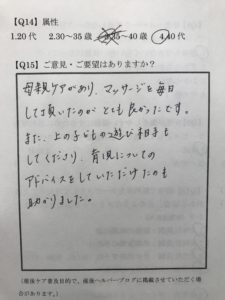 【Q14】属性
1.20代 2.30～35歳 3.35～40歳 4.40代
【Q15】ご意見・ご要望はありますか？
母親ケアがあり、マッサージを毎日
して頂いたのがとても良かったです。
また、上の子どもの遊び相手も
してくださり、育児についての
アドバイスをしていただけたのも
助かりました。
（産後ケア普及目的で、産後ヘルパーブログに掲載させていただく場
合があります。）